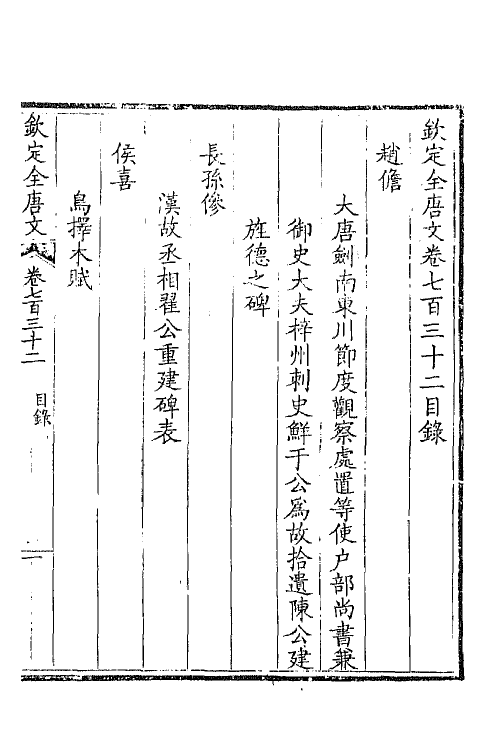 欽定全唐文卷七百三十二目錄
趙儋
大唐劍南東川節度觀察處置等使户部尚書兼
御史大夫梓州刺史鮮于公爲故拾遺陳公建
旌德之碑
長孫儳
漢故丞相翟公重建碑表
侯喜
鳥擇木賦
欽定全唐文
卷七百三十二
目錄